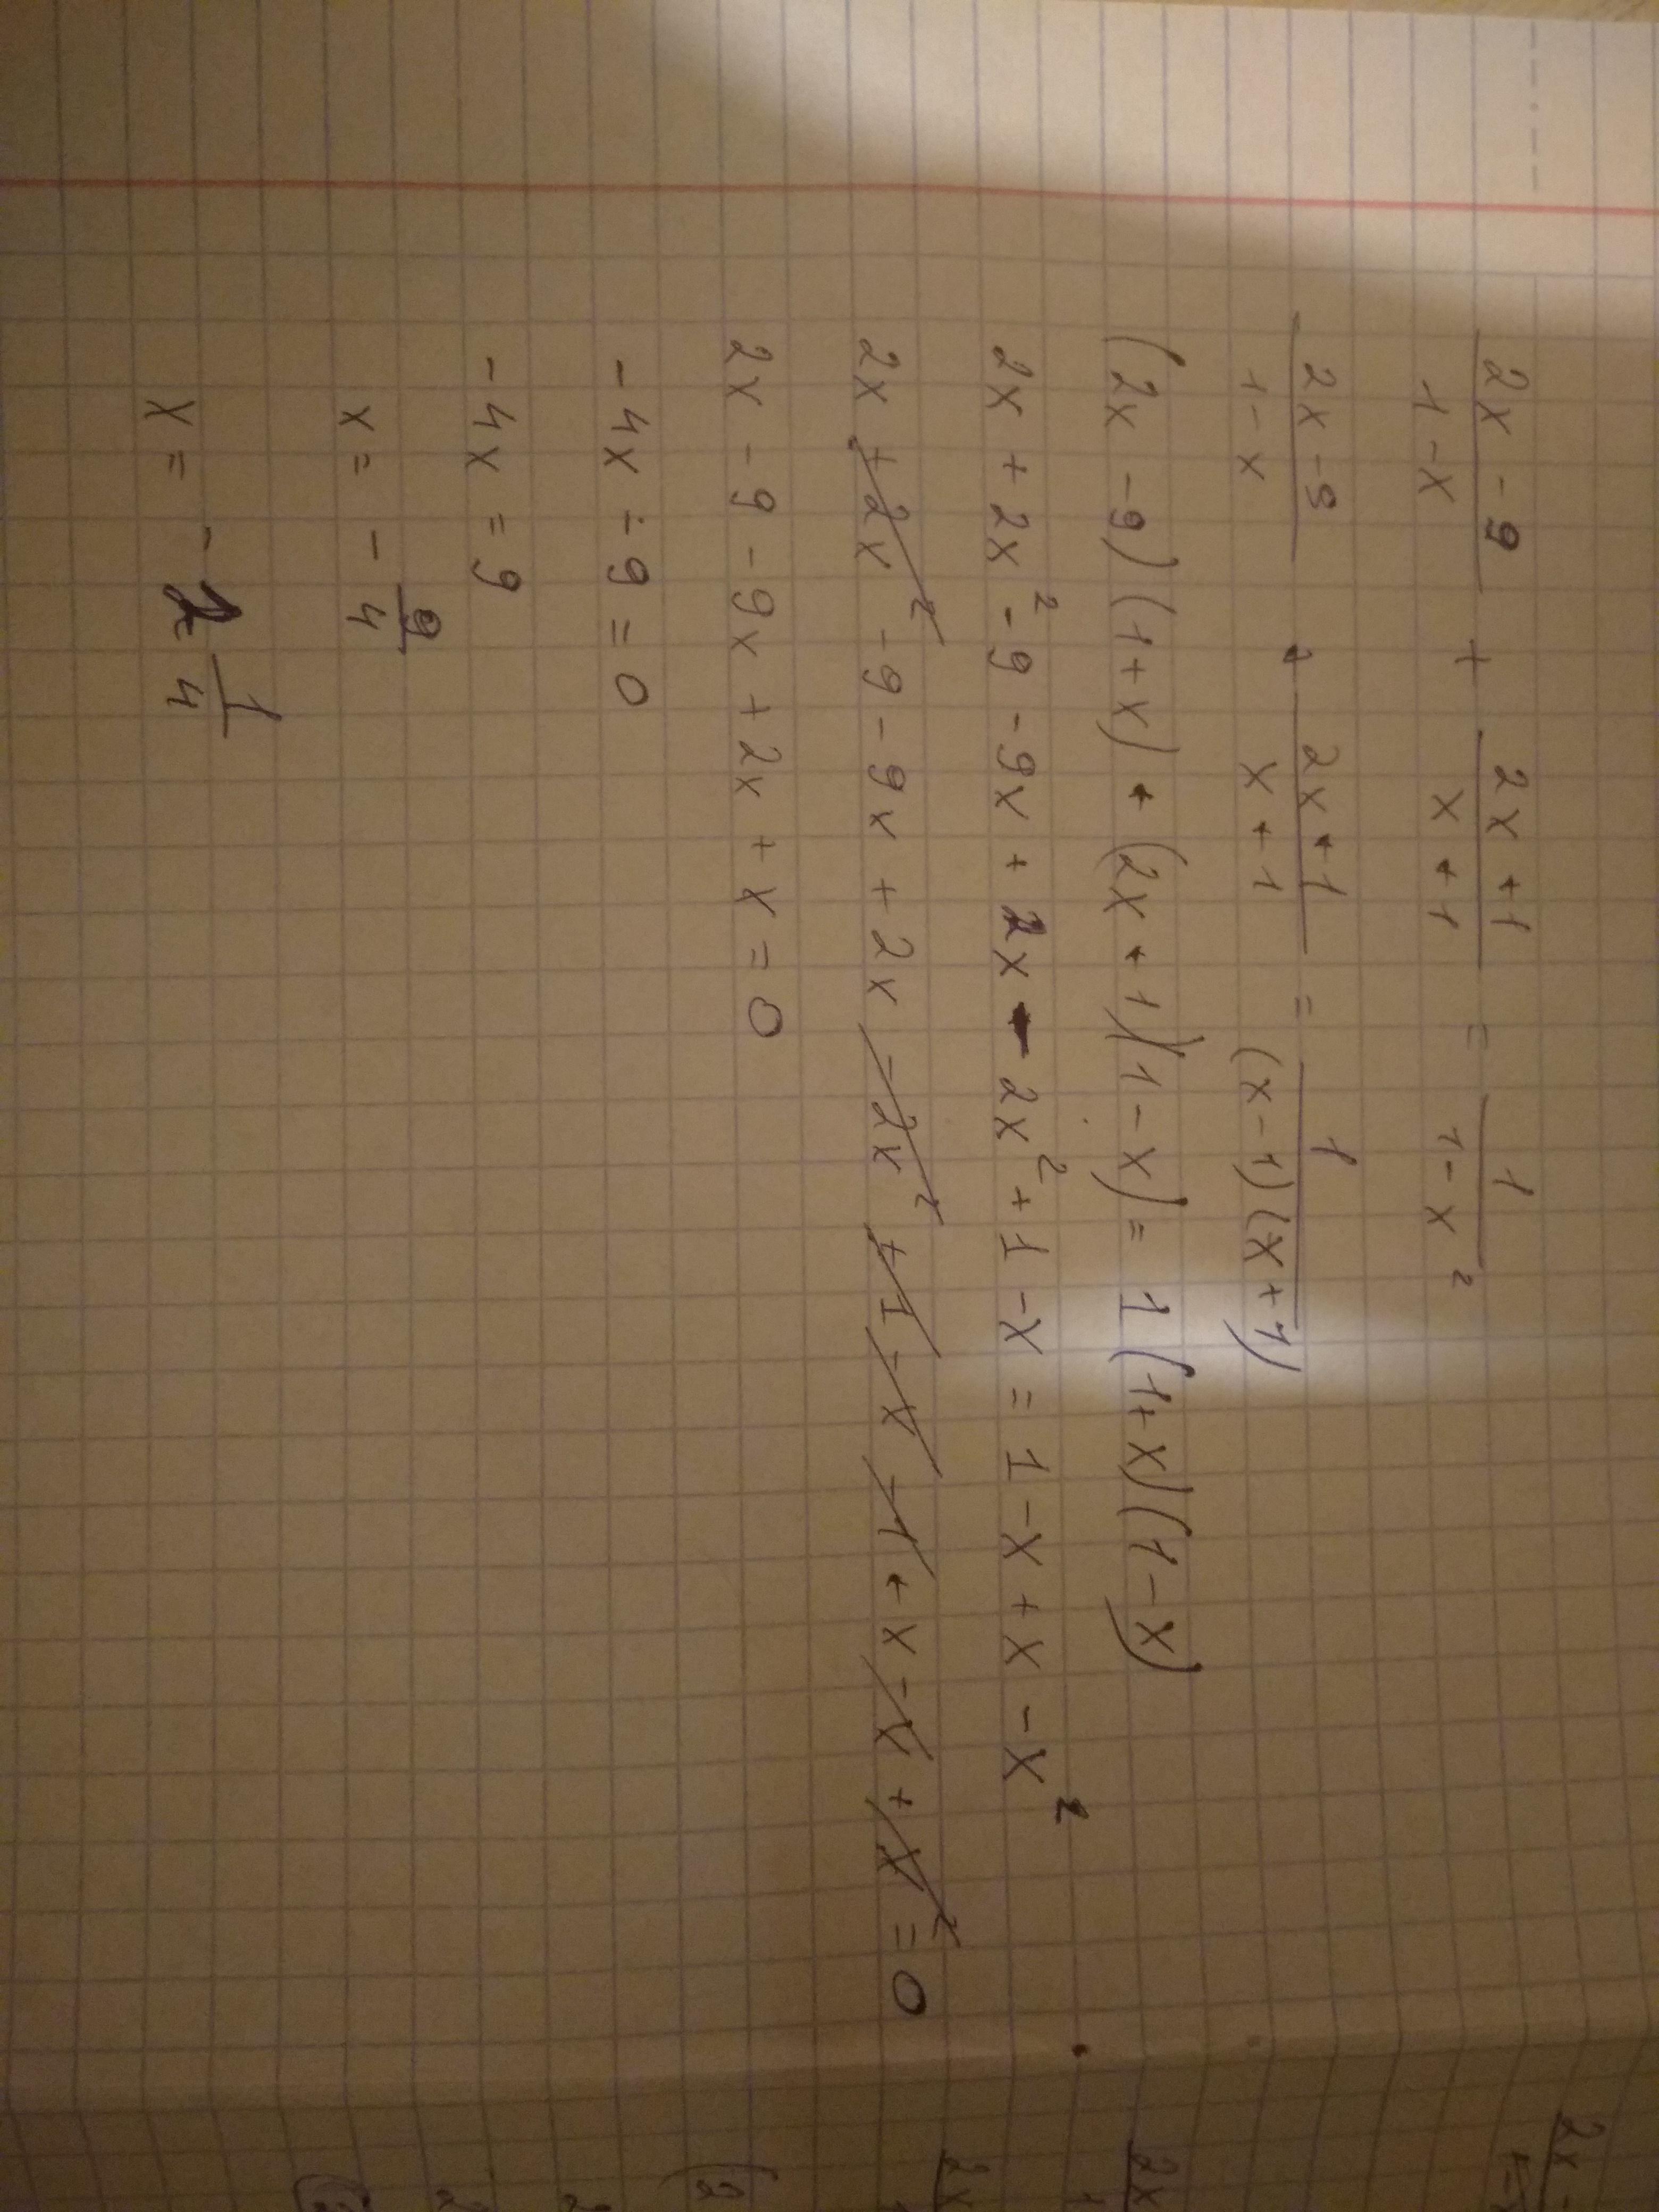 (2x - 9)/(1 - x) + (2x + 1)/(x + 1) = 1/(1 - x²)
(2x - 9)/(1 - x) + (2x + 1)/(x + 1) = 1/((x - 1)(x + 1))
(2x - 9)(1 + x) + (2x + 1)(1 - x) = 1(1 + x)(1 - x)
2x + 2x² - 9 - 9x + 2x - 2x² + 1 - x = 1 - x + x - x²
2x + 2x² - 9 - 9x + 2x - 2x² + 1 - x - 1 + x - x + x² = 0
2x - 9 - 9x + 2x + x = 0
- 4x - 9 = 0
- 4x = 9
x = - 9/4
x = - 2 1/4